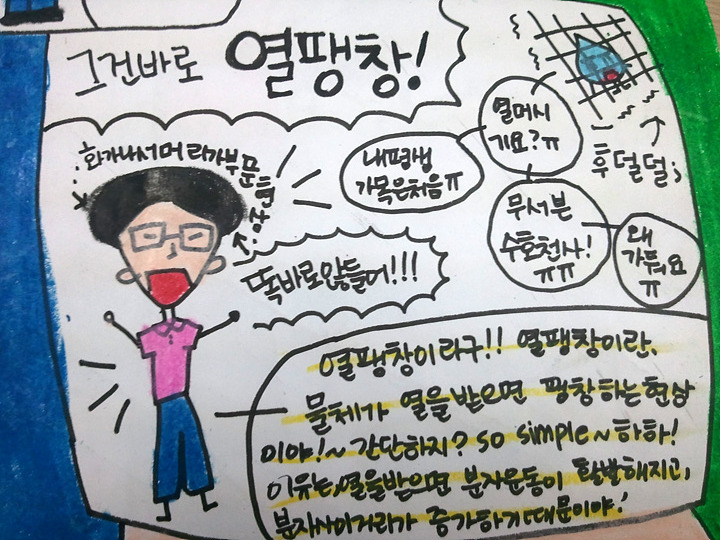 그건바로 열팽창!
화가나서머리가부푼현상
내평생
가목은처음ㅠ
열머시
기요?ㅠ
후덜덜;
무서븐
수호천사!
ㅠㅠ
왜
가둬요
ㅠ
똑바로않들어!!!
열팽창이라구!! 열팽창이란,
물체가 열을받으면 팽창하는현상
이야!~ 간단하지? so simple~하하!
이유는,열을받으면 분자운동이 활발해지고,
분자사이거리가 증가하기때문이야!